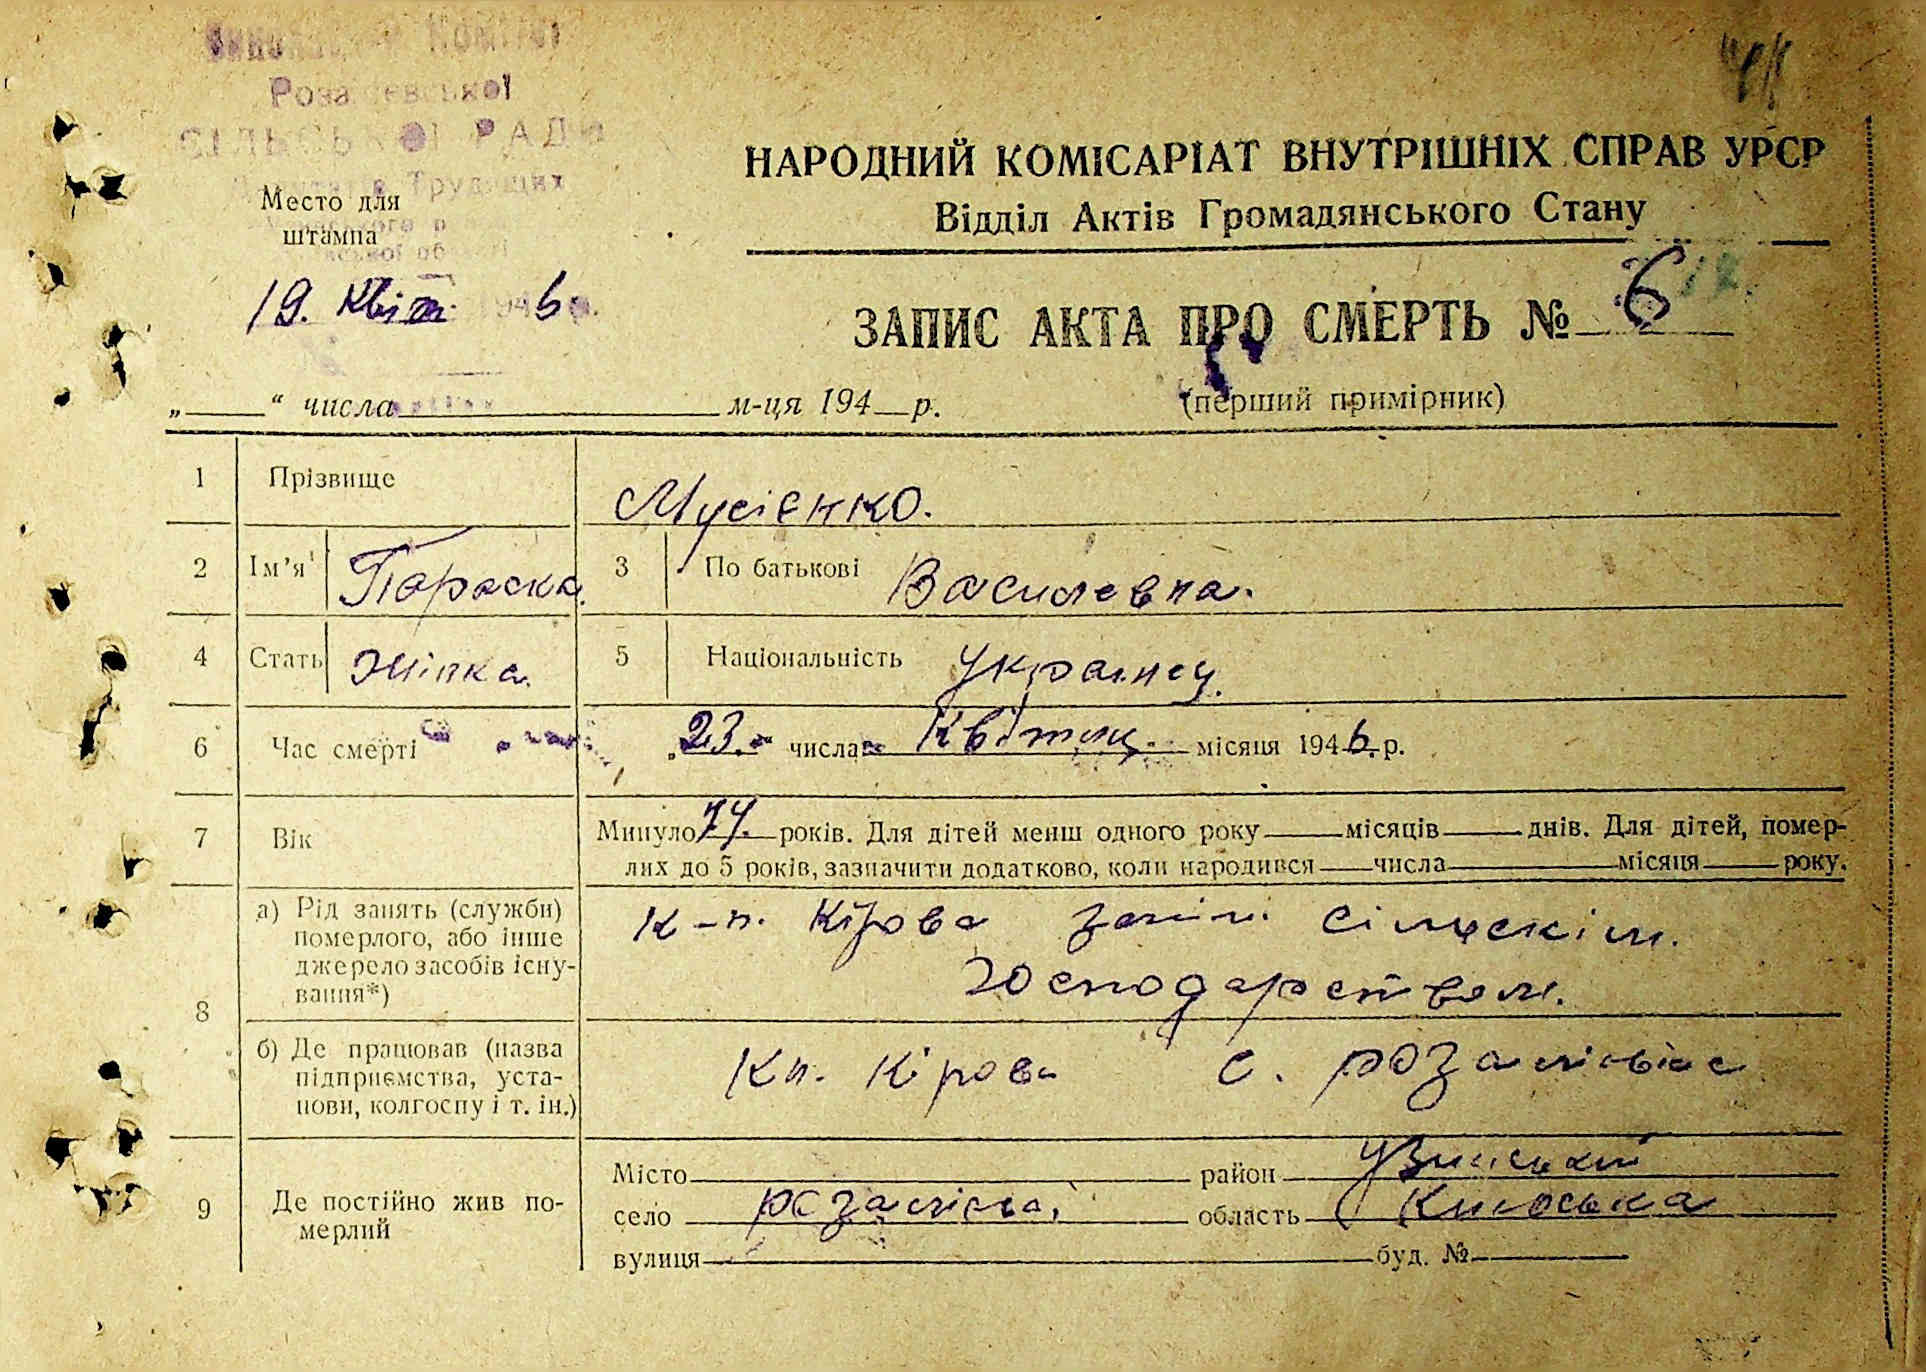 Виконавчий Комітет
Розаліевської
СІЛЬСЬКОЇ РАДИ
Депутатів Трудящих
Место для
штампа
19. Квіт. 1946 р.
НАРОДНИЙ КОМІСАРІАТ ВНУТРІШНІХ СПРАВ УРСР
Відділ Актів Громадянського Стану
ЗАПИС АКТА ПРО СМЕРТЬ № 6
„ “ числа м-ця 194 р.
(перший примірник)
1 Прізвище Мусієнко.
2 Ім’я Параска. 3 По батькові Василевна.
4 Стать Жінка. 5 Національність Украінец.
6 Час смерті „23.“ числа Квітня. місяця 1946. р.
7 Вік Минуло 74. років. Для дітей менш одного року місяців днів. Для дітей, помер-
лих до 5 років, зазначити додатково, коли народився числа місяця року.
8 а) Рід занять (служби)
померлого, або інше
джерело засобів існу-
вання*)
к-п. Кірова сільскім.
господарством.
б) Де працював (назва
підприємства, уста-
нови, колгоспу і т. ін.)
Кп. Кірова с. розалівка
9 Де постійно жив по-
мерлий
Місто район Узинський
село розалівка, область Киювська
вулиця буд. №